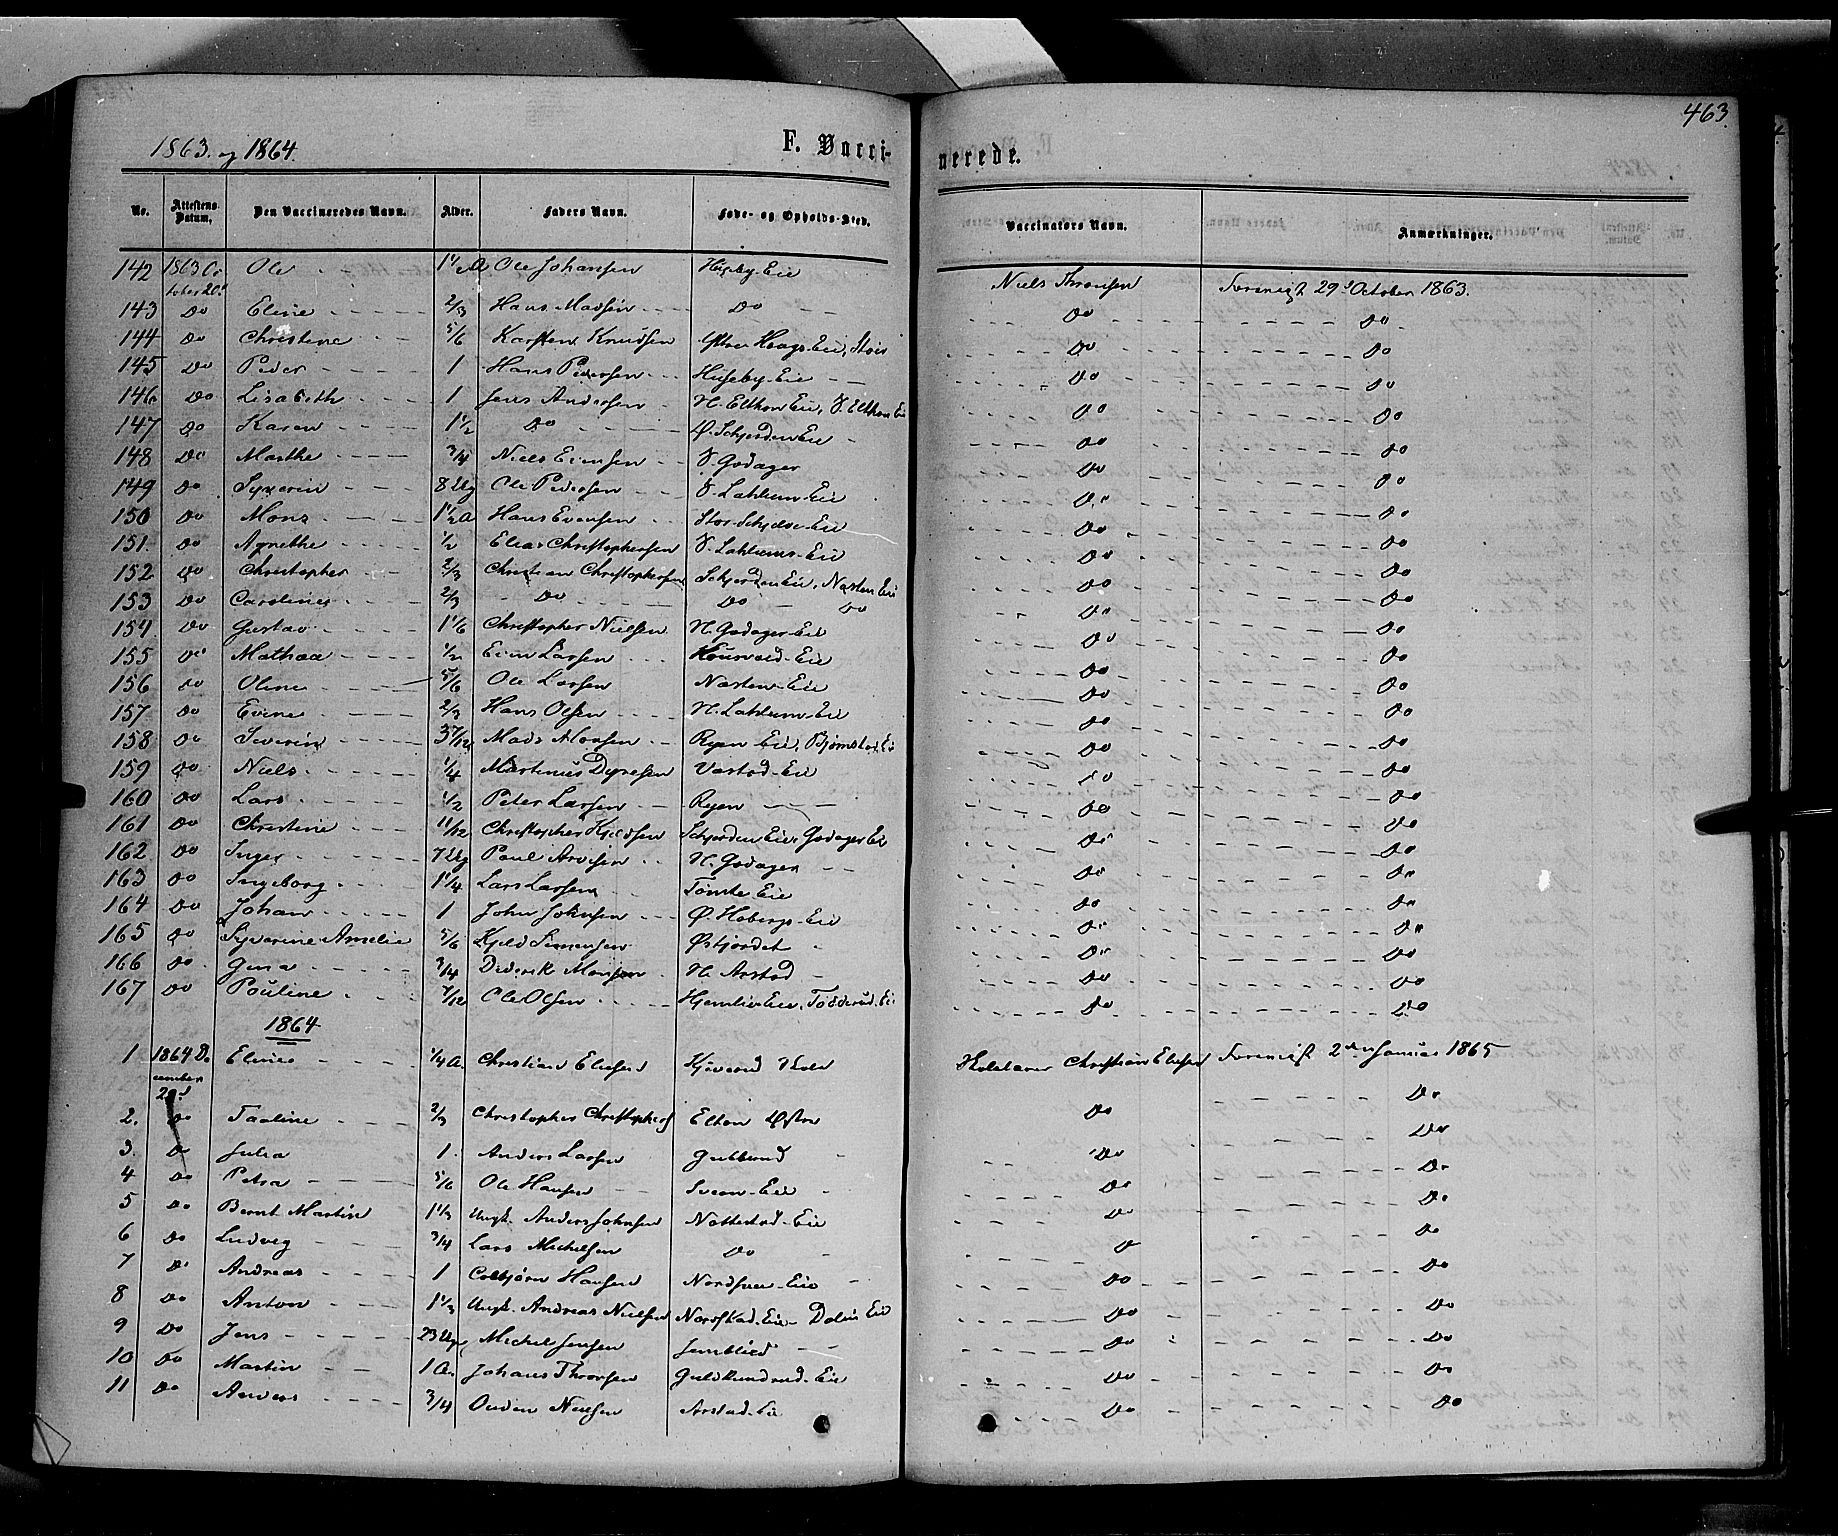 463.
1863. og 1864.
F. Vaccinerede.
No. Attestens Datum. Den Vaccineredes Navn. Alder. Faders Navn. Føde- og Opholds-Sted. Vaccinators Navn. Anmærkninger.
142 1863 October 20d Ole 1 1/2 A Ole Johansen Huseby-Eie Niels Thronsen 29d October 1863.
143 Do Eline 2/3 Hans Madsen Do Do Do
144 Do Christine 5/6 Karsten Knudsen Do Do
145 Do Peder 1 Hans Pedersen Huseby-Eie Do Do
146 Do Lisabeth 1 Jens Andersen N. Elthon Eie, S. Elthon Eie Do Do
147 Do Karen 1 1/2 Do Ø. Schjerden Eie Do Do
148 Do Marthe 3/4 Niels Evensen S. Godager Do Do
149 Do Syverin 8 Ug Ole Pedersen S. Lahlum-Eie Do Do
150 Do Mons 1 1/2 A Hans Evensen Do Do
151. Do Agnethe 1/2 Elias Christophersen S. Lahlums-Eie Do Do
152 Do Christopher 2/3 Christian Christophersen Schjerden Eie, Næsten Eie Do Do
153 Do Caroline 2/3 Do Do Do Do Do
154 Do Gustav 1 1/6 Christopher Nielsen N. Godager-Eie Do Do
155 Do Mathea 1/2 Even Larsen Do Do
156 Do Oline 5/6 Ole Larsen Næsten-Eie Do Do
157 Do Evine 2/3 Hans Olsen N. Lahlum-Eie Do Do
158 Do Severin 3 7/12 Mads Monsen Ryen Eie, Bjørnstad, Ei Do Do
159 Do Niels 1/4 Martinus Dyresen Vastad-Eie Do Do
160 Do Lars 1/2 Peter Larsen Ryen Do Do
161 Do Christine 11/12 Christopher Kjeldsen Schjerden Eie, Godager Ei Do Do
162 Do Inger 7 Ug Paul Arvesen N. Godager Do Do
163 Do Ingeborg 1 1/4 Lars Larsen Tomte Eie Do Do
164 Do Johan 1 John Johnsen Ø. Hobergs-Eie Do Do
165 Do Syverine Amelie 5/6 Kjeld Simensen Østjordet Do Do
166 Do Gina 3/4 Diderik Monsen N. Arstad Do Do
167 Do Pouline 7/12 Ole Olsen Hjemlie Eie, Do Do
1864
1 1864 December 29d Eline 1/4 A. Christian Eliesen Kjæverud Skole Skolelærer Christian Eliesen 2den Januar 1865
2. Do Pauline 2/3 Christopher Christophers Elton Østre Do Do
3. Do Julia 1. Anders Larsen Gubberud Do Do
4 Do Petra 5/6 Ole Hansen Sveen-Eie Do Do
5 Do Bernt Martin 1 1/3 Ungk. Anders Johnsen Nøttestad-Eie Do Do
6 Do Ludvig 3/4 Lars Michelsen Do Do Do
7 Do Andreas 1 Colbjørn Hansen Nordsveen-Eie Do Do
8 Do Anton 1 1/3 Ungk. Andreas Nielsen Norstad-Eie - Dolin Eie Do Do
9 Do Jens 23 Ug Michel Jensen Jemblied Do Do
10 Do Martin 1 A. Johans Thronsen Guldkundrud-Eie Do Do
11 Do Anders 3/4 Ouden Nielsen Arstad-Eie Do Do